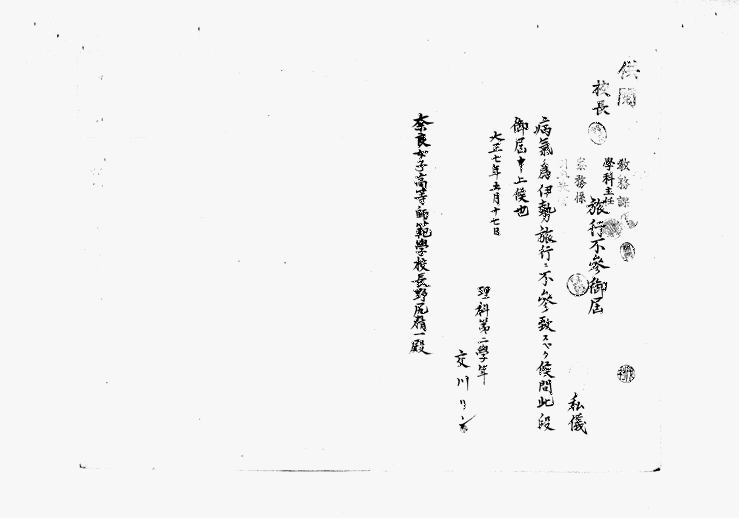 供閲
校長
教務課
學科主任
庶務係
旅行不參御届
私儀
病氣ノ爲伊勢旅行ニ不參致スベク候間此段
御届申上候也
大正七年五月十七日
理科第二學年
交川
奈良女子高等師範學校長野尻精一殿